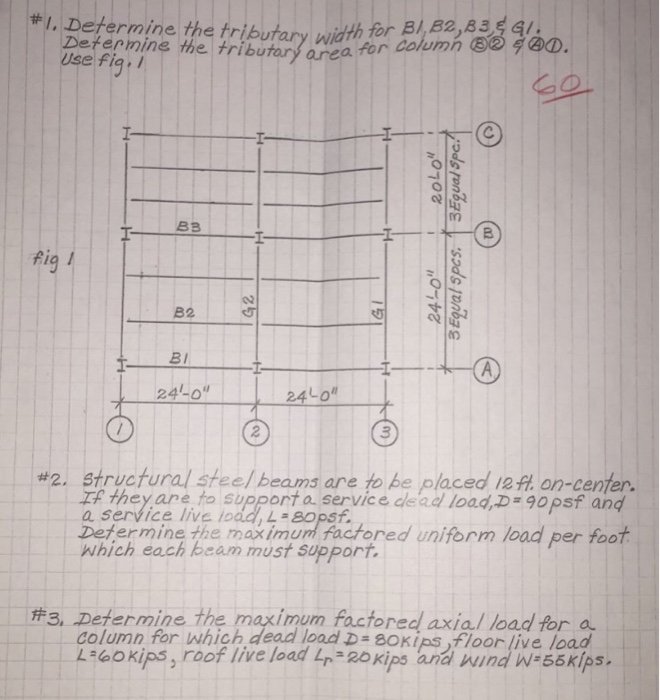 #1. Determine the tributary width for B1, B2, B3, & G1.
Determine the tributary area for column Ⓑ② & Ⓐ①.
Use fig. 1
60
C
20'-0"
3 Equal Spc.
B3
B
fig 1
24'-0"
3 Equal Spcs.
B2
G2
G1
B1
A
24'-0"
24'-0"
1
2
3
#2. Structural steel beams are to be placed 12 ft. on-center.
If they are to support a service dead load, D = 90 psf and
a service live load, L = 80 psf.
Determine the maximum factored uniform load per foot
which each beam must support.
#3. Determine the maximum factored axial load for a
column for which dead load D = 80 Kips, floor live load
L = 60 Kips, roof live load Lr = 20 Kips and wind W = 55 Kips.